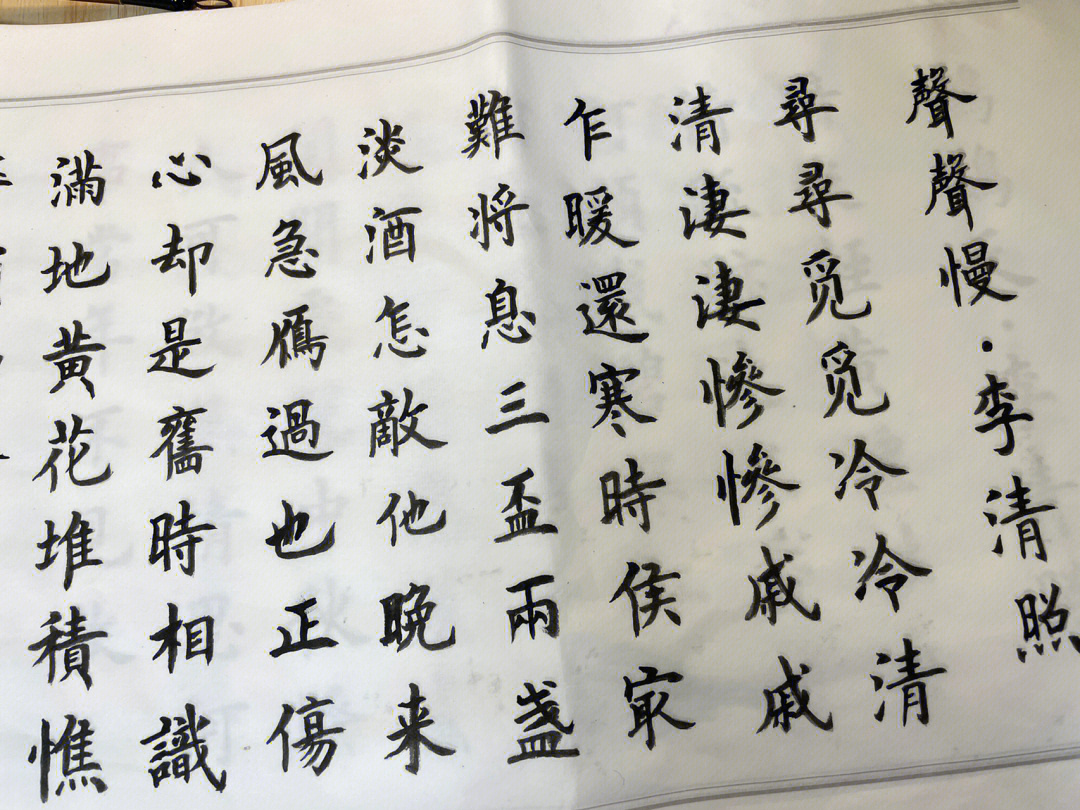 聲聲慢·李清照
尋尋觅觅冷冷清
清淒淒慘慘戚戚
乍暖還寒時侯冣
難将息三盃兩盞
淡酒怎敵他晚来
風急鴈過也正傷
心却是舊時相識
滿地黄花堆積憔